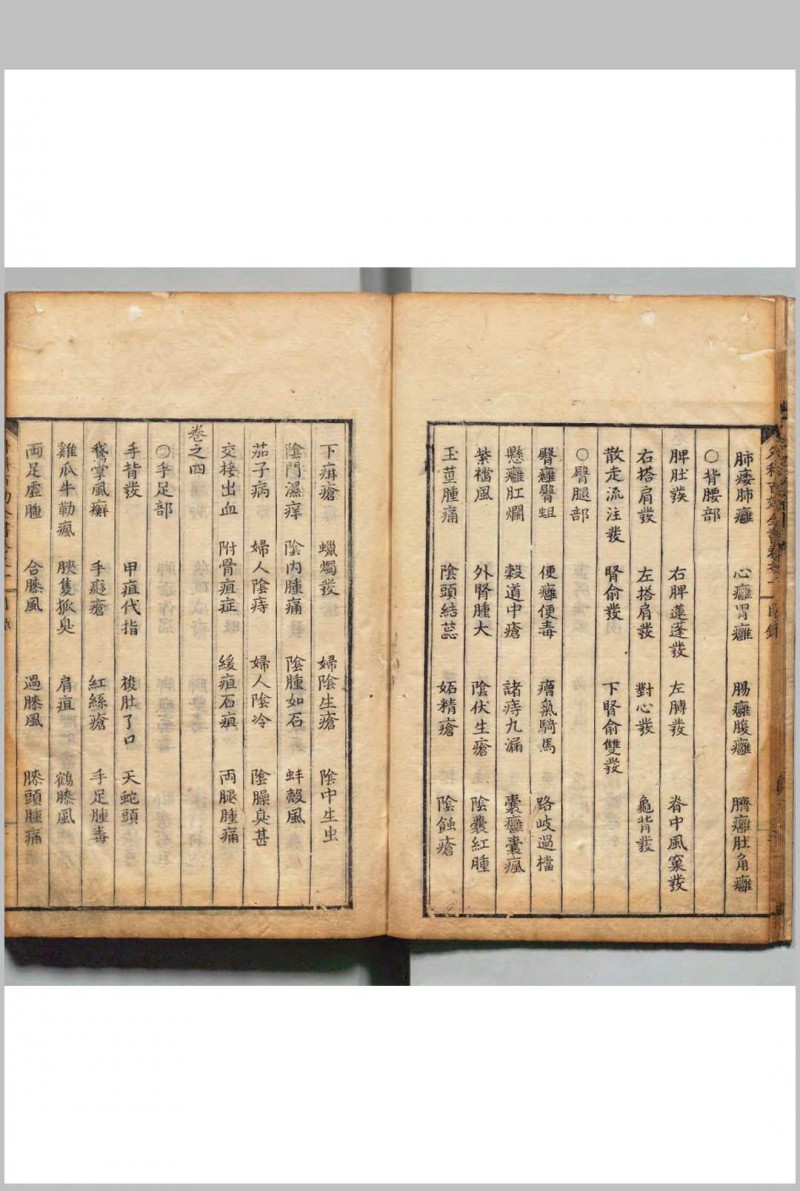 肺痿肺癰　心癰胃癰　腸癰腹癰　臍癰肚角癰
○背腰部
脾肚發　右脾蓮蓬發　左膊發　脊中風窠發
右搭肩發　左搭肩發　對心發　龜背發
散走流注發　腎俞發　下腎俞雙發
○臀腿部
臀癰臀蛆　便癰便毒　疳氣騎馬　路岐過檔
懸癰肛爛　穀道中瘡　諸痔九漏　囊癰囊瘋
紫襠風　外腎腫大　陰伏生瘡　陰囊紅腫
玉莖腫痛　陰頭結蕋　妬精瘡　陰蝕瘡
下疳瘡　蠟燭發　婦陰生瘡　陰中生虫
陰門濕痒　陰內腫痛　陰腫如石　蚌殼風
茄子病　婦人陰痔　婦人陰冷　陰臊臭甚
交接出血　附骨疽症　緩疽石疽　両腿腫痛
卷之四
○手足部
手背發　甲疽代指　梭肚了口　天蛇頭
鵝掌風癬　手瘡　紅絲瘡　手足腫毒
雞瓜牛勒瘋　腋隻狐臭　肩疽　鶴膝風
両足虛腫　合膝風　過膝風　膝頭腫痛